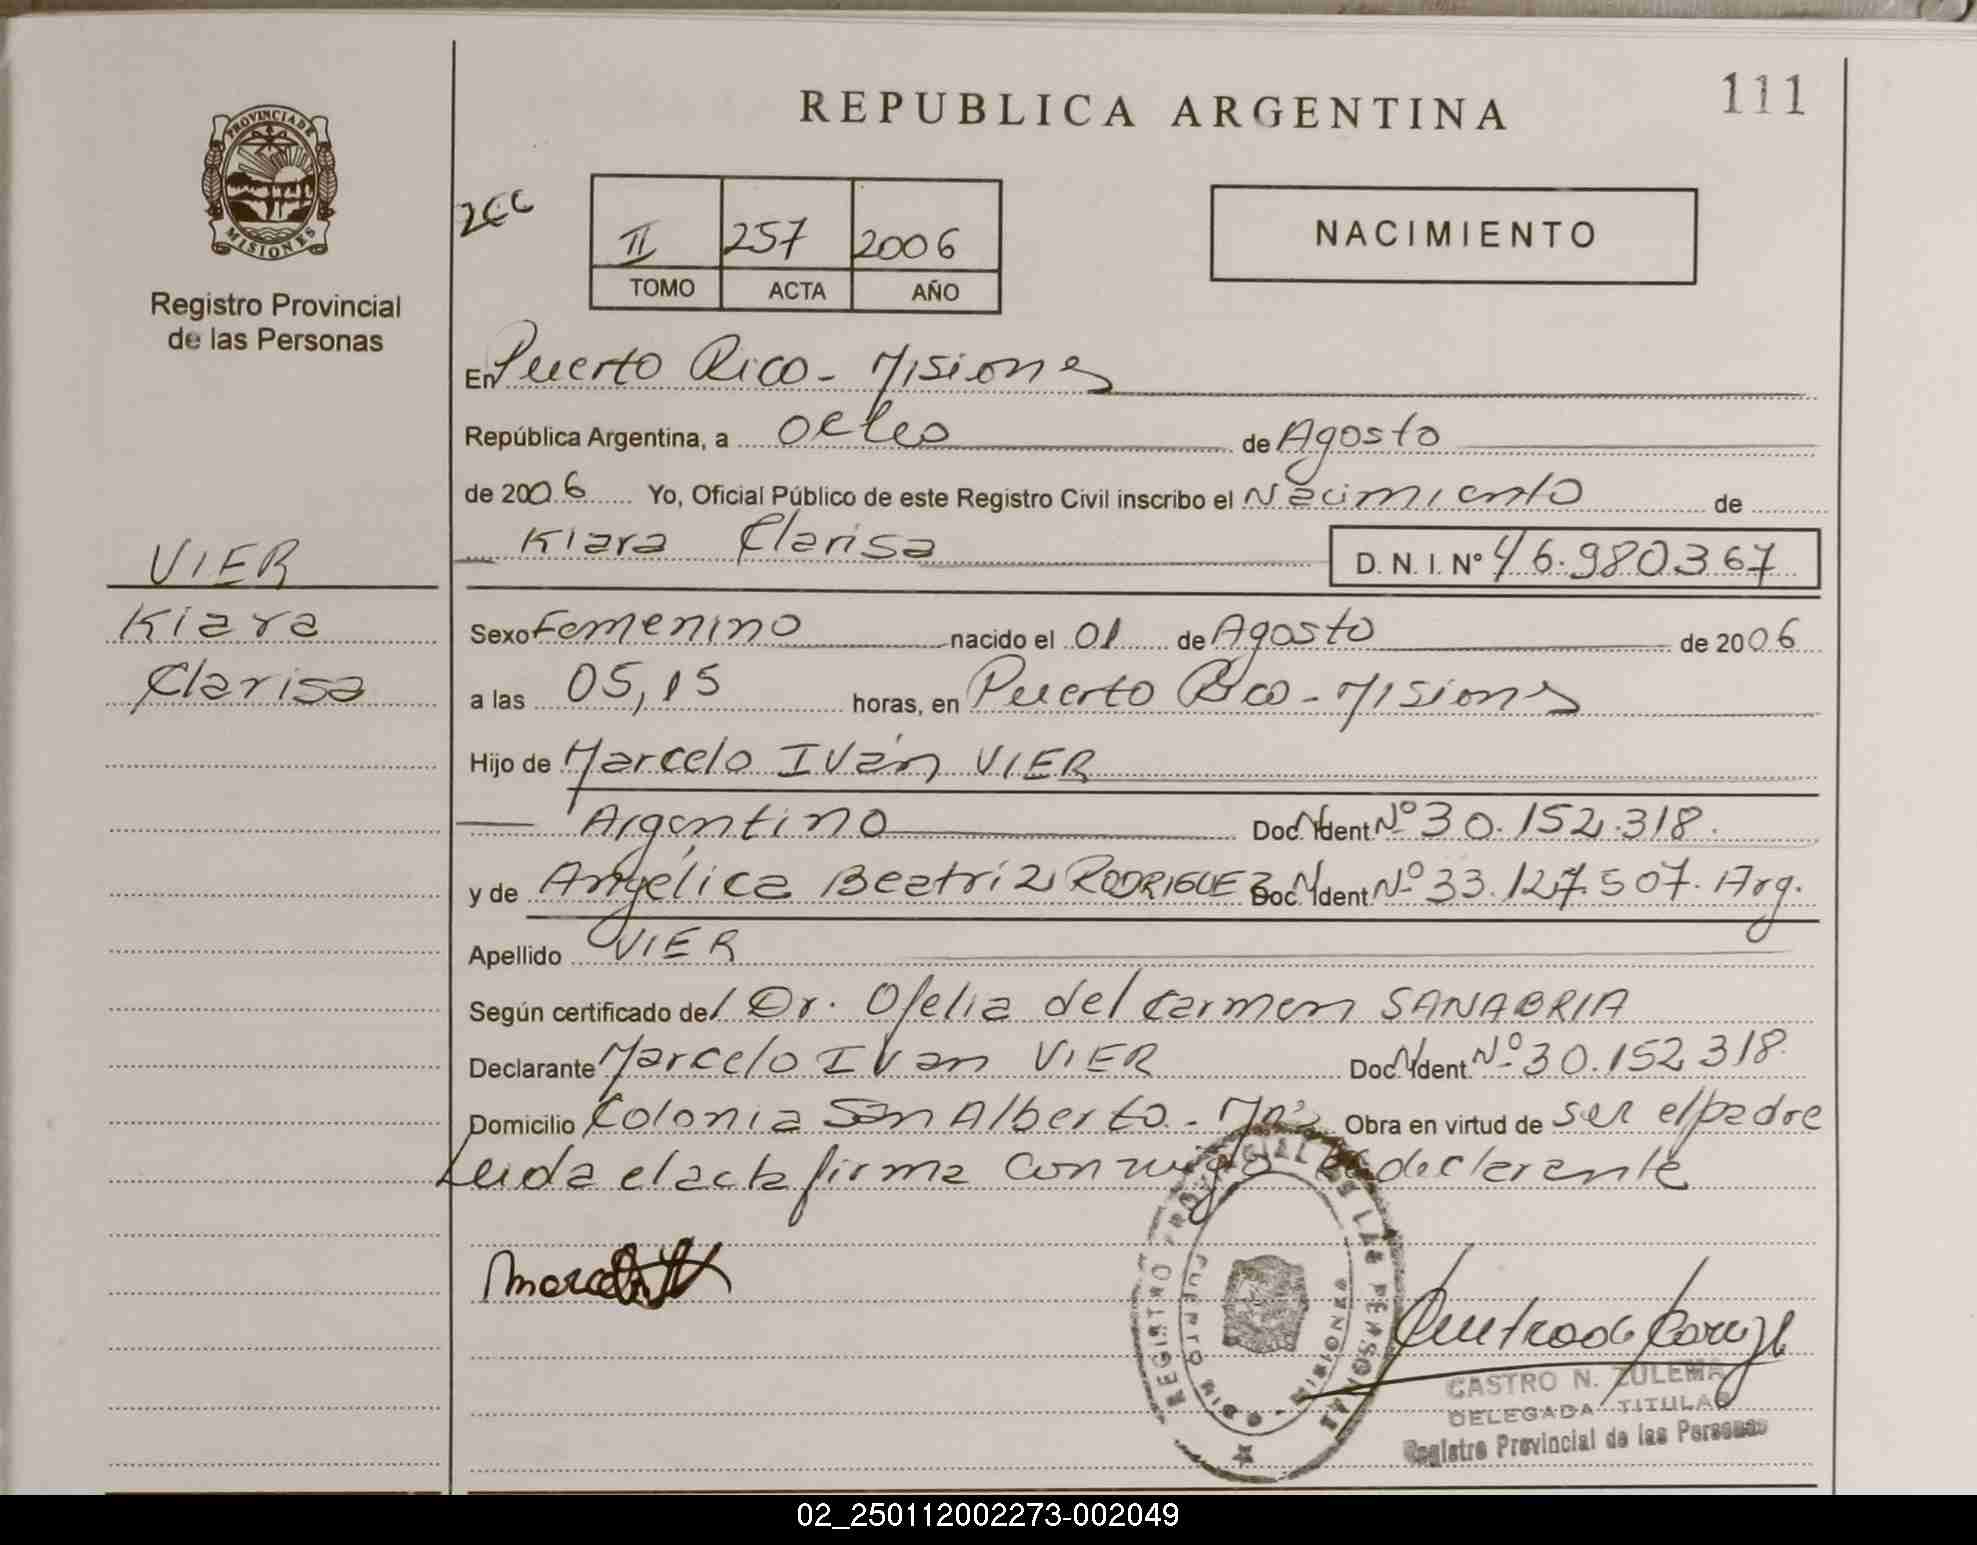 REPUBLICA ARGENTINA
111
PROVINCIA DE
MISIONES
Registro Provincial
de las Personas
II 257 2006
TOMO ACTA AÑO
NACIMIENTO
En Puerto Rico - Misiones
República Argentina, a ocho de Agosto
de 2006 Yo, Oficial Público de este Registro Civil inscribo el Nacimiento de
Kiara Clarisa D. N. I. Nº 46.980.367
VIER
Kiara
Clarisa
Sexo Femenino nacido el 01 de Agosto de 2006
a las 05,15 horas, en Puerto Rico - Misiones
Hijo de Marcelo Iván VIER
Argentino Doc. Ident. Nº 30.152.318.
y de Angélica Beatríz RODRIGUEZ Doc. Ident. Nº 33.127.507. Arg.
Apellido VIER
Según certificado de/ Dr. Ofelia del Carmen SANABRIA
Declarante Marcelo Ivan VIER Doc. Ident. Nº 30.152.318.
Domicilio Colonia San Alberto - Mnes Obra en virtud de ser el padre
Leida el acta firma conmigo el declarante
REGISTRO PROVINCIAL DE LAS PERSONAS
PUERTO RICO - MISIONES
CASTRO N. ZULEMA
DELEGADA TITULAR
Registro Provincial de las Personas
02_250112002273-002049